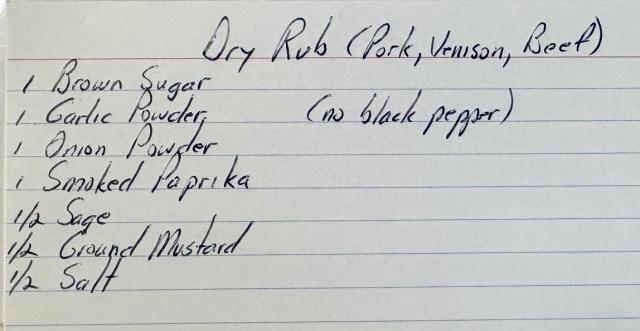 Dry Rub (Pork, Venison, Beef)
1 Brown Sugar
1 Garlic Powder (no black pepper)
1 Onion Powder
1 Smoked Paprika
1/2 Sage
1/2 Ground Mustard
1/2 Salt